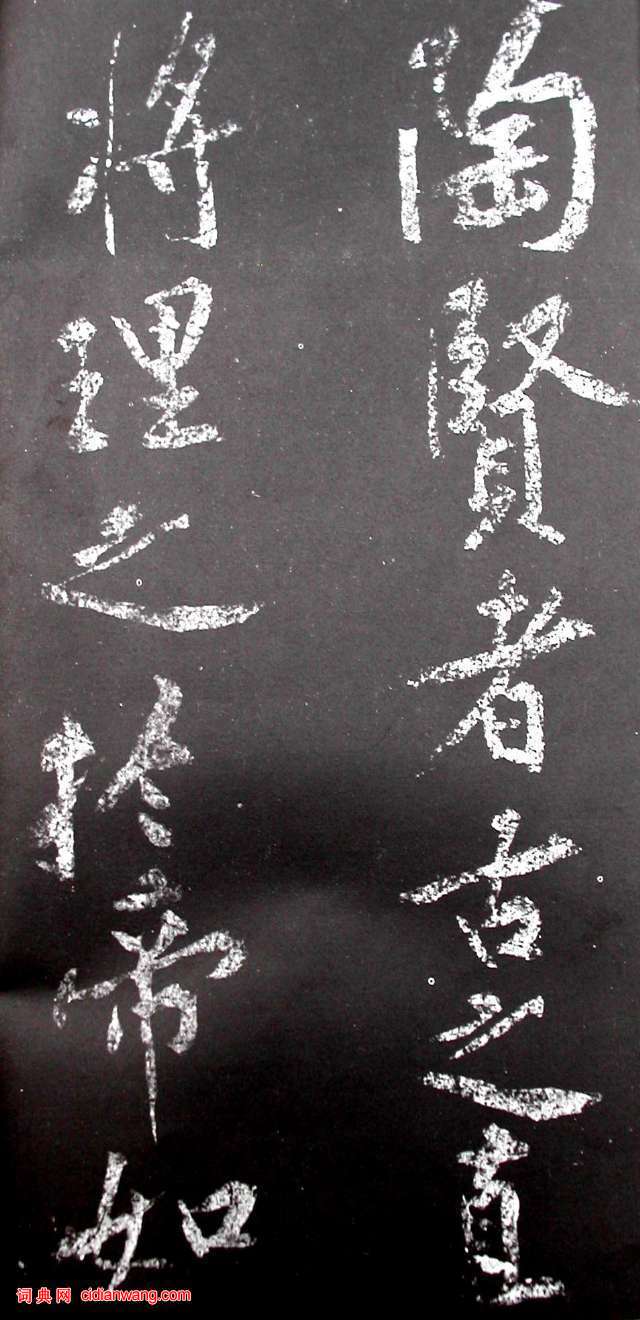 陶賢者古之直
將理之於帝如
词典网 cidianwang.com